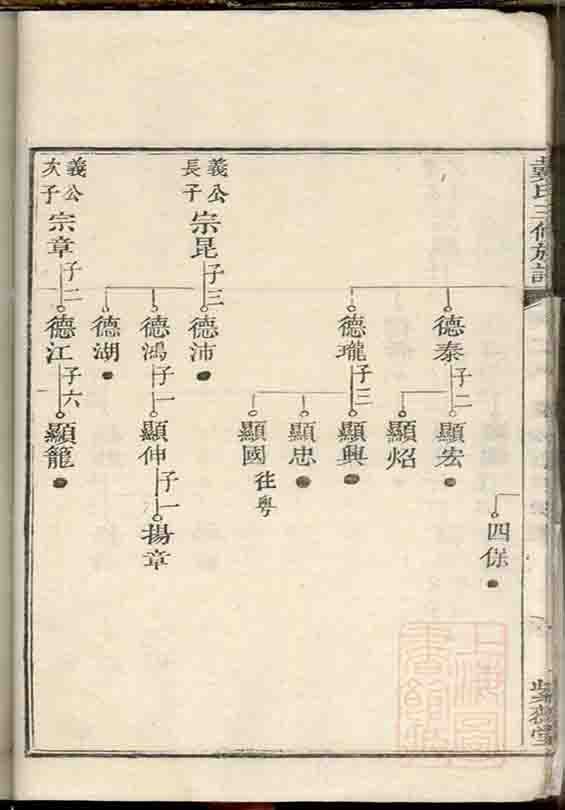 四保
德泰
子二
顯宏
顯炤
德瓏
子三
顯興
顯忠
顯國
往粵
義公
長子
宗昆
子三
德沛
德鴻
子一
顯伸
子一
揚章
德湖
義公
次子
宗章
子二
德江
子六
顯龍
氏三修族譜
紫薇堂
上海圖
書館藏